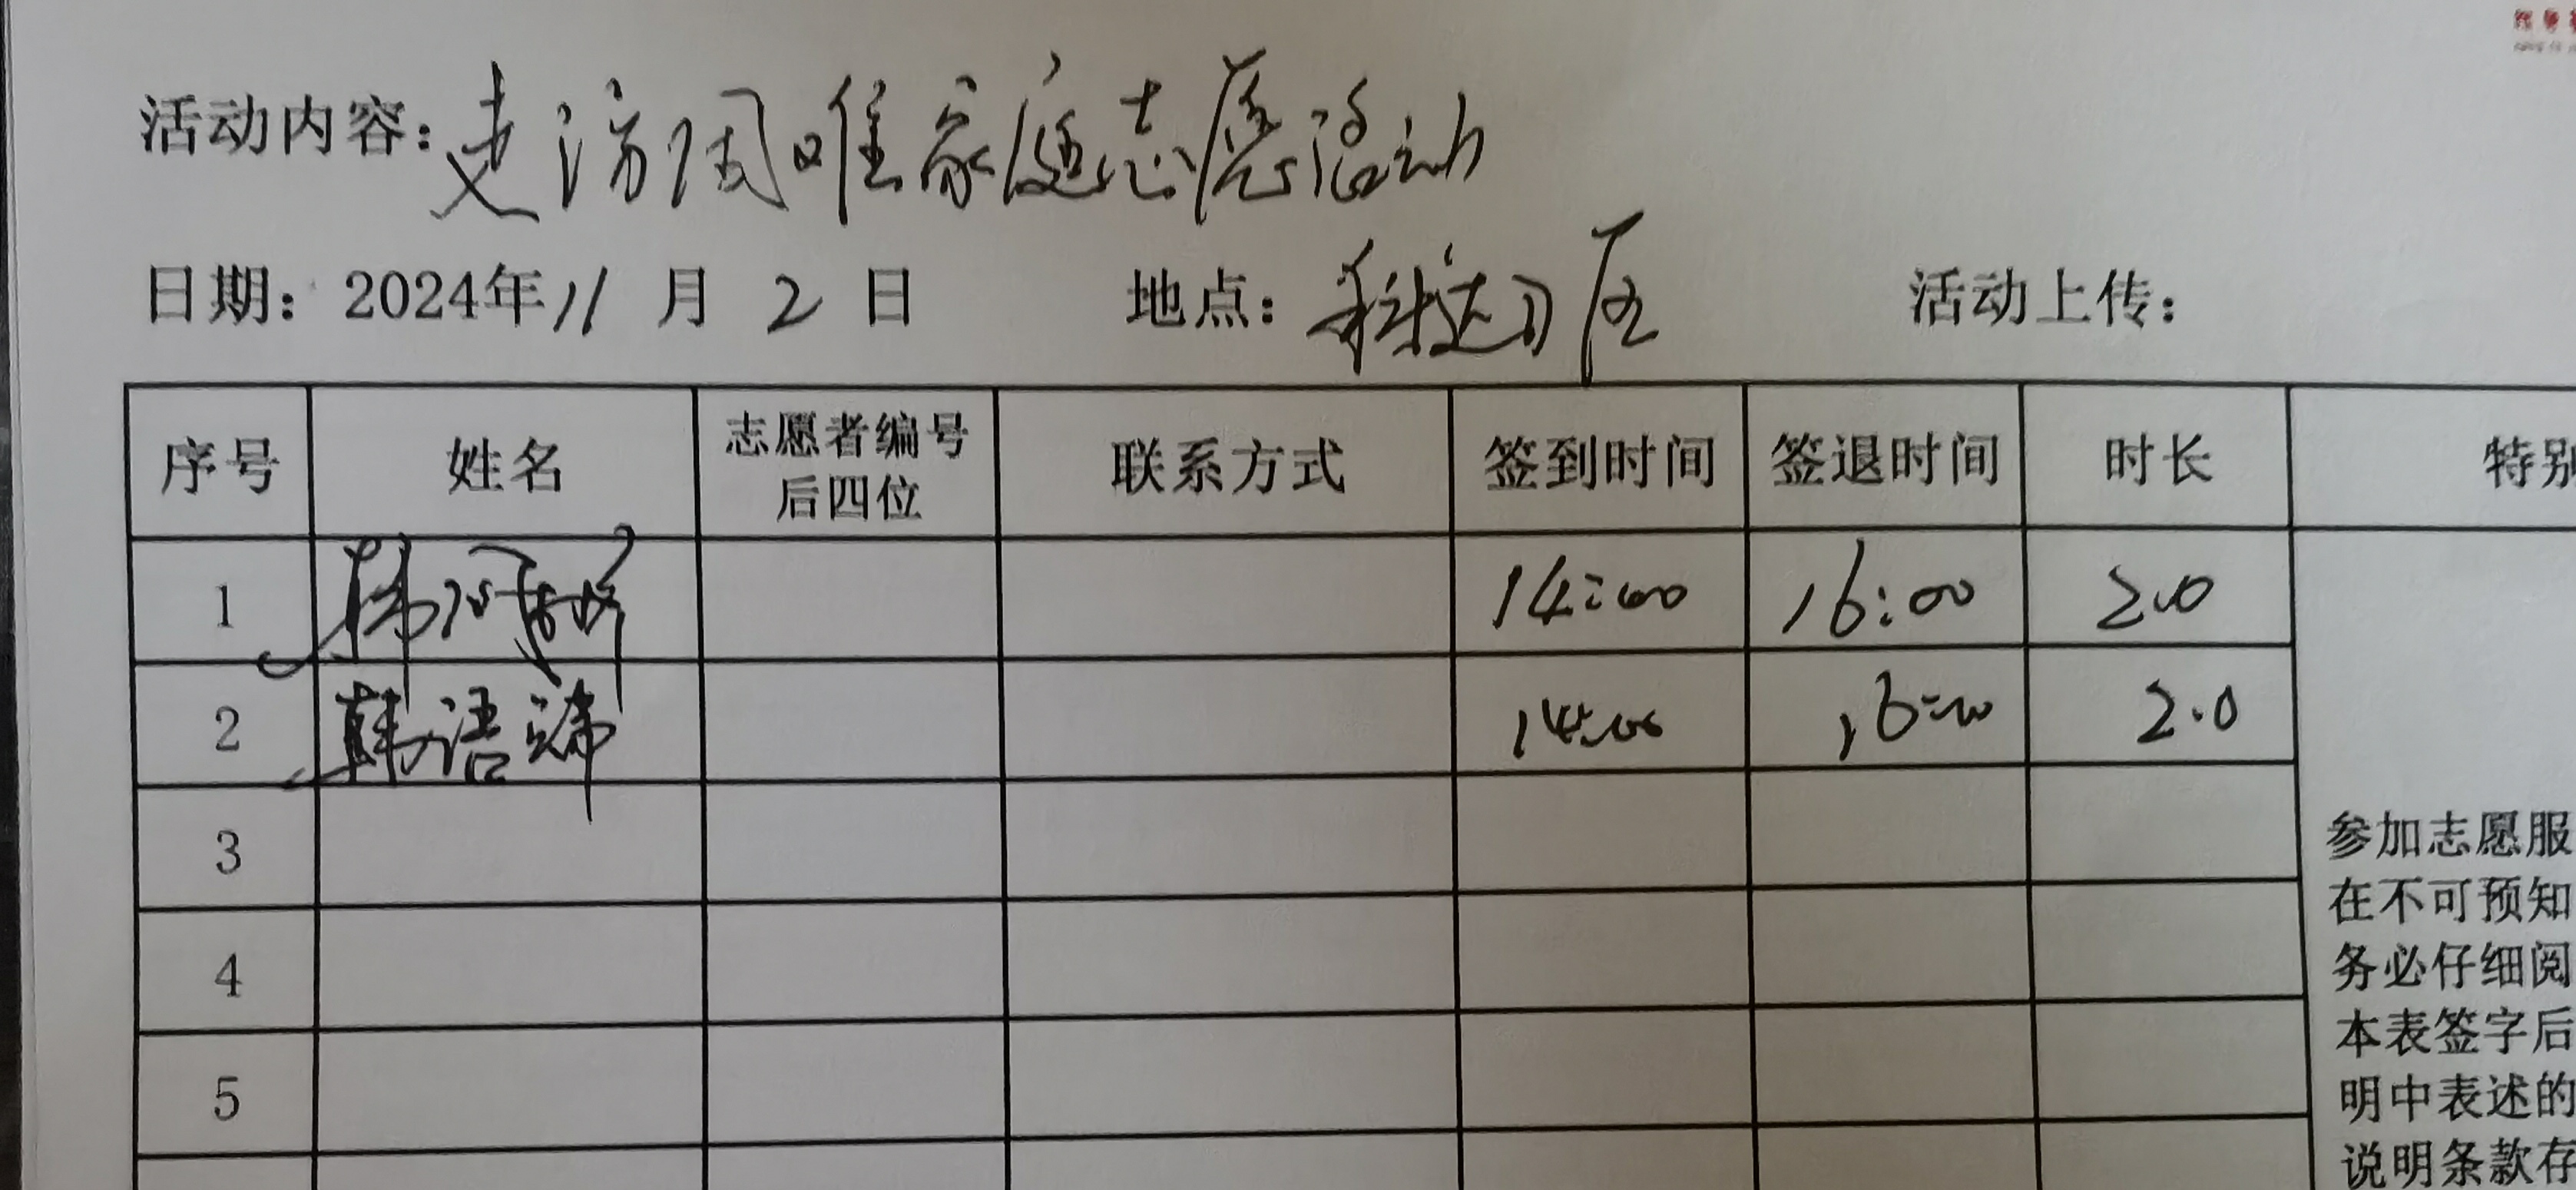 活动内容：走访困难家庭志愿活动
日期：2024年11月2日 地点： 活动上传：
序号 姓名 志愿者编号后四位 联系方式 签到时间 签退时间 时长 特别
1 14:00 16:00 2.0
2 韩语 14:00 16:00 2.0
3
4
5
参加志愿服
在不可预知
务必仔细阅
本表签字后
明中表述的
说明条款存